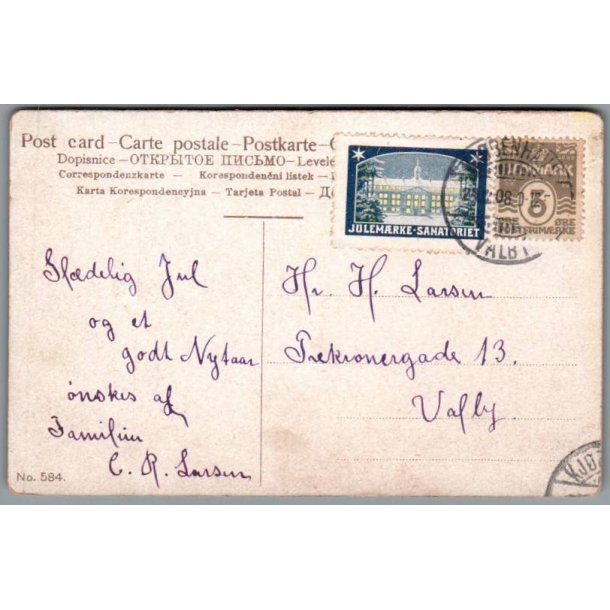 Post card – Carte postale – Postkarte –
Dopisnice – ОТКРЫТОЕ ПИСЬМО – Levele
Correspondenzkarte – Korespondenční listek –
Karta Korespondencyjna – Tarjeta Postal –
JULEMÆRKE-SANATORIET
KØBENHAVN
VALBY
DANMARK
5
ØRE
FRIMÆRKE
Glædelig Jul
og et
godt Nytaar
ønskes af
Familien
C. R. Larsen
Hr. H. Larsen
Trekronergade 13.
Valby
No. 584.
KJØ